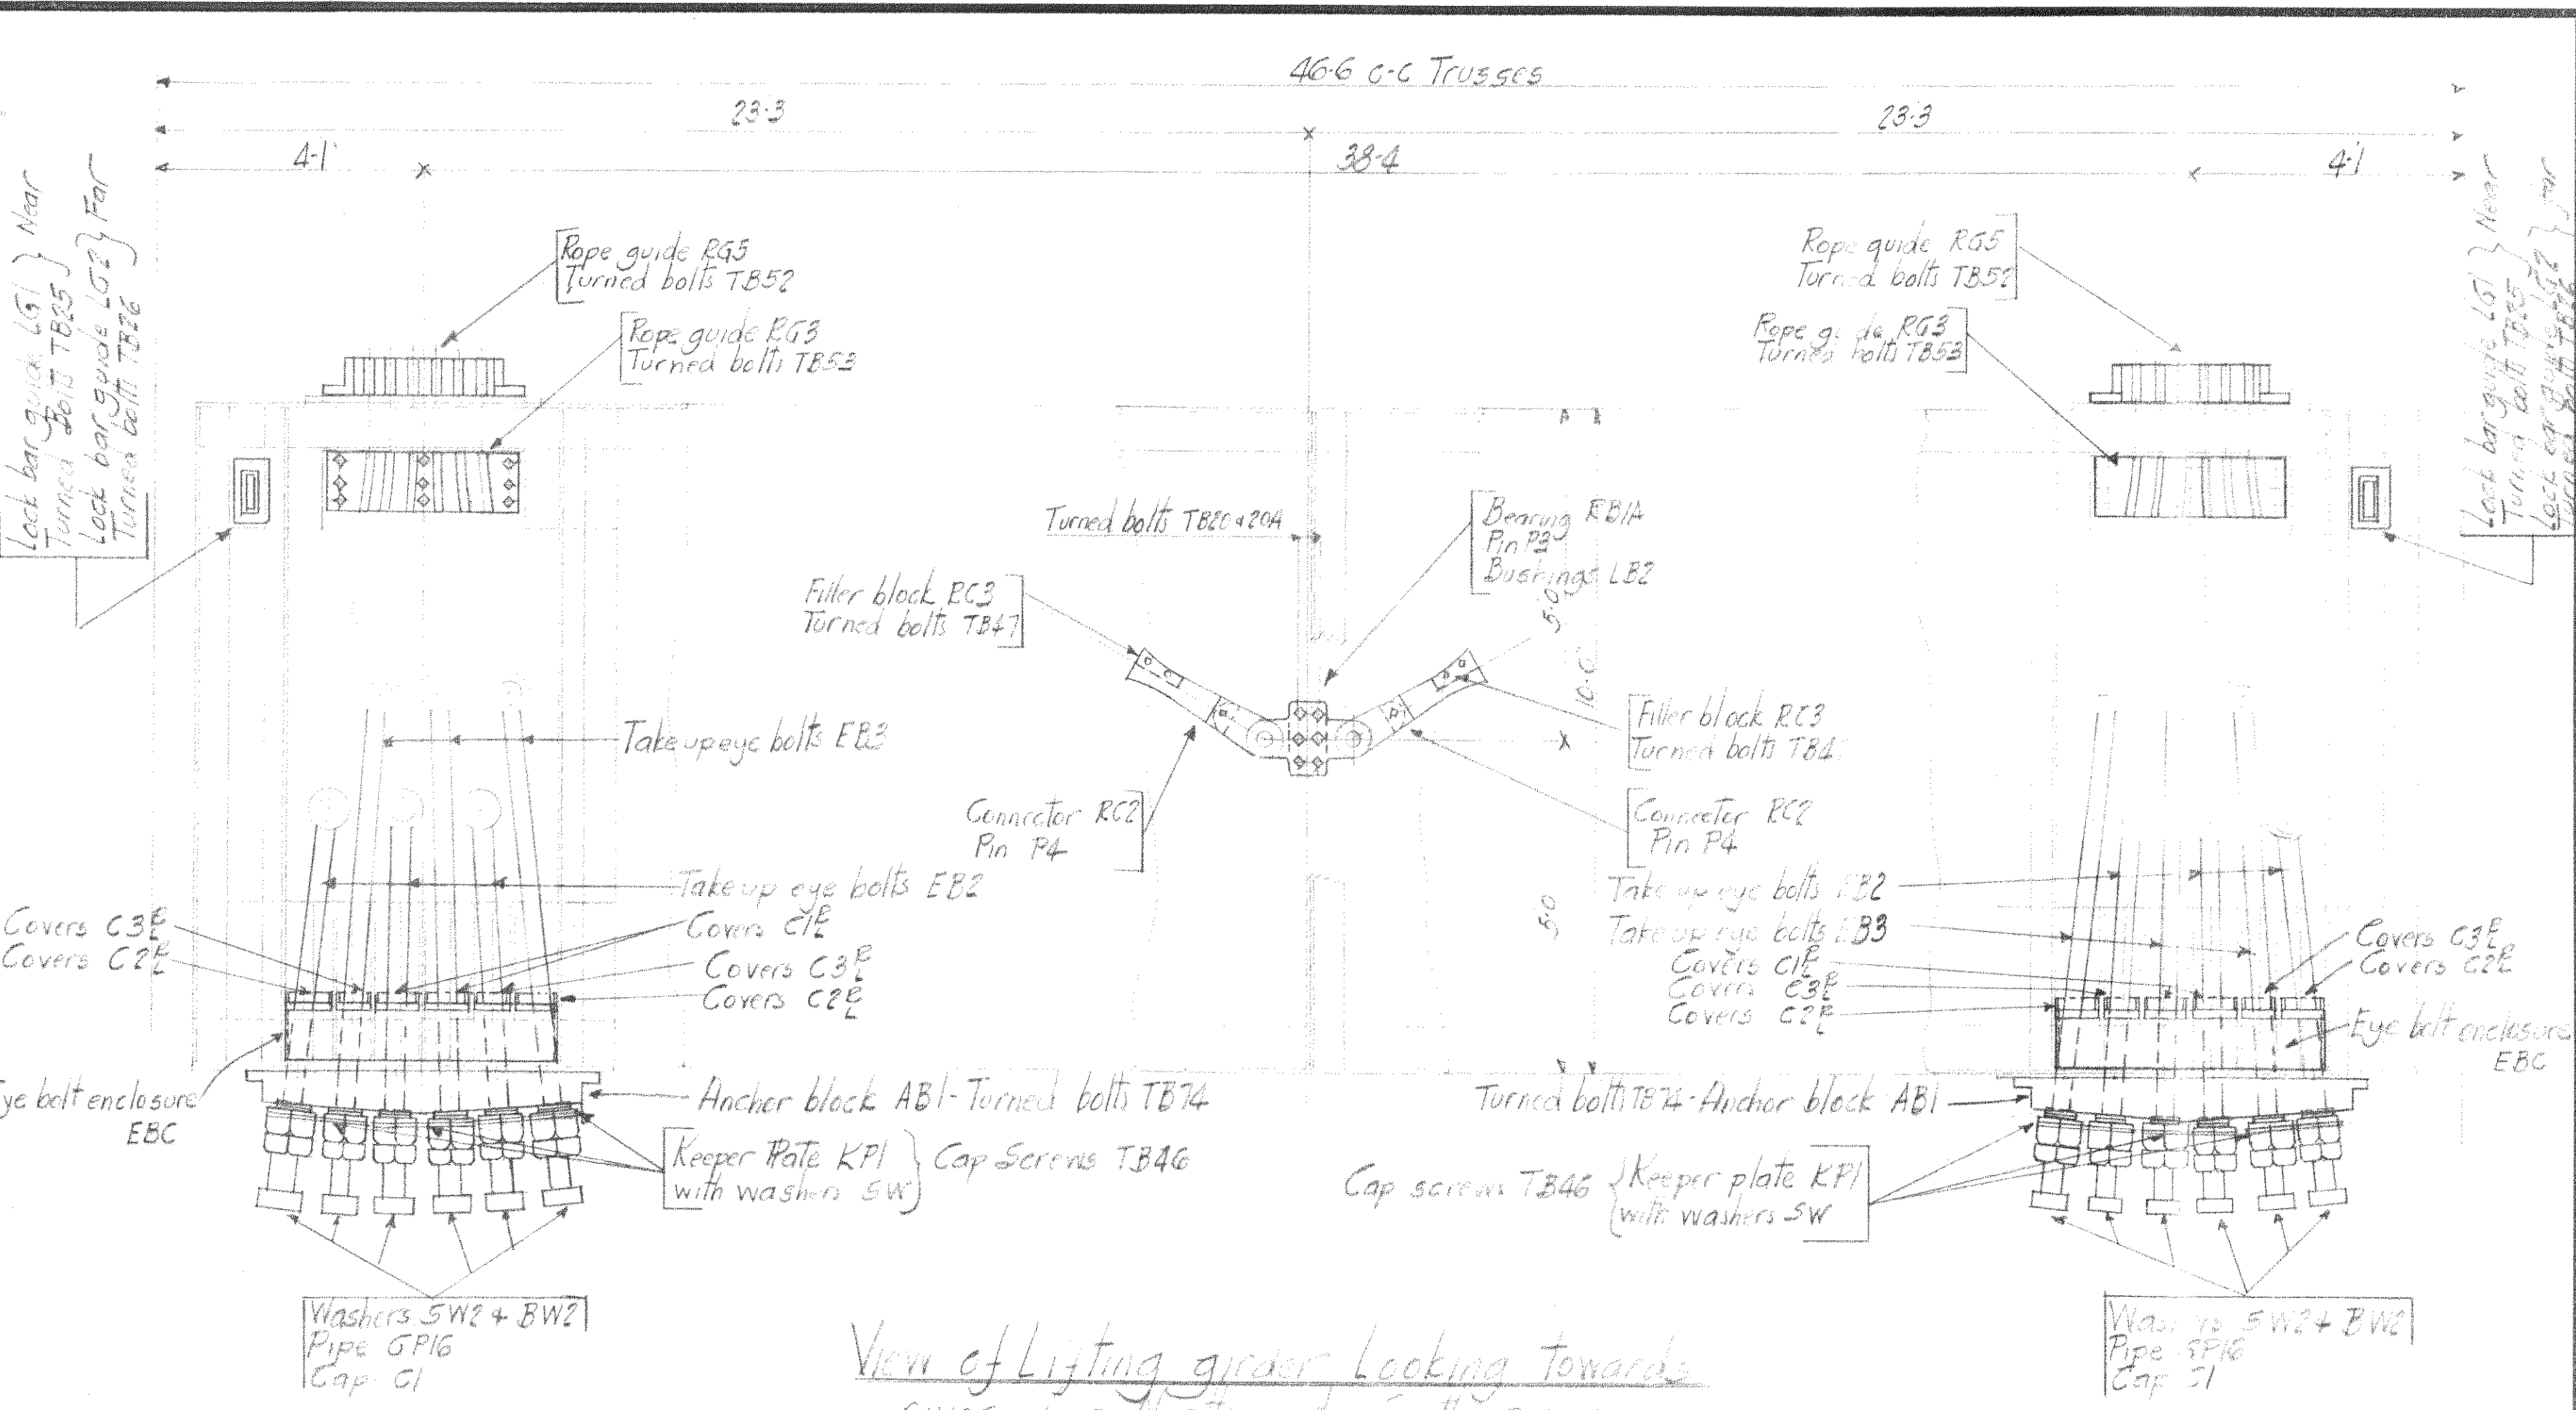 46·6 c-c Trusses
23·3
23·3
4-1
38-4
4-1
Lock bar guide LG1 } Near
Turned Bolts TB25
Lock bar guide LG2 } Far
Turned bolts TB26
Lock bar guide LG1 } Near
Turned bolts TB25
Lock bar guide LG2 } Far
Rope guide RG5
Turned bolts TB52
Rope guide RG3
Turned bolts TB53
Rope guide RG5
Turned bolts TB52
Rope guide RG3
Turned bolts TB53
Turned bolts TB20 & 20A
Bearing RB1A
Pin P3
Bushings LB2
Filler block RC3
Turned bolts TB47
5·0
10·0
Filler block RC3
Turned bolts TB4
Take up eye bolts EB3
Connector RC2
Pin P4
Connector RC2
Pin P4
Take up eye bolts EB2
Take up eye bolts EB2
Take up eye bolts EB3
5·0
Covers C3 R/L
Covers C2 R/L
Covers C1 R/L
Covers C3 R/L
Covers C2 R/L
Covers C1 R/L
Covers C3 R/L
Covers C2 R/L
Covers C3 R/L
Covers C2 R/L
Eye bolt enclosure
EBC
ye bolt enclosure
EBC
Anchor block AB1-Turned bolts TB74
Turned bolts TB74-Anchor block AB1
Keeper Plate KP1 } Cap Screws TB46
with washers SW
Cap screws TB46 { Keeper plate KP1
with washers SW
Washers SW2 & BW2
Pipe GP16
Cap C1
Washers SW2 & BW2
Pipe GP16
Cap C1
View of Lifting girder Looking towards